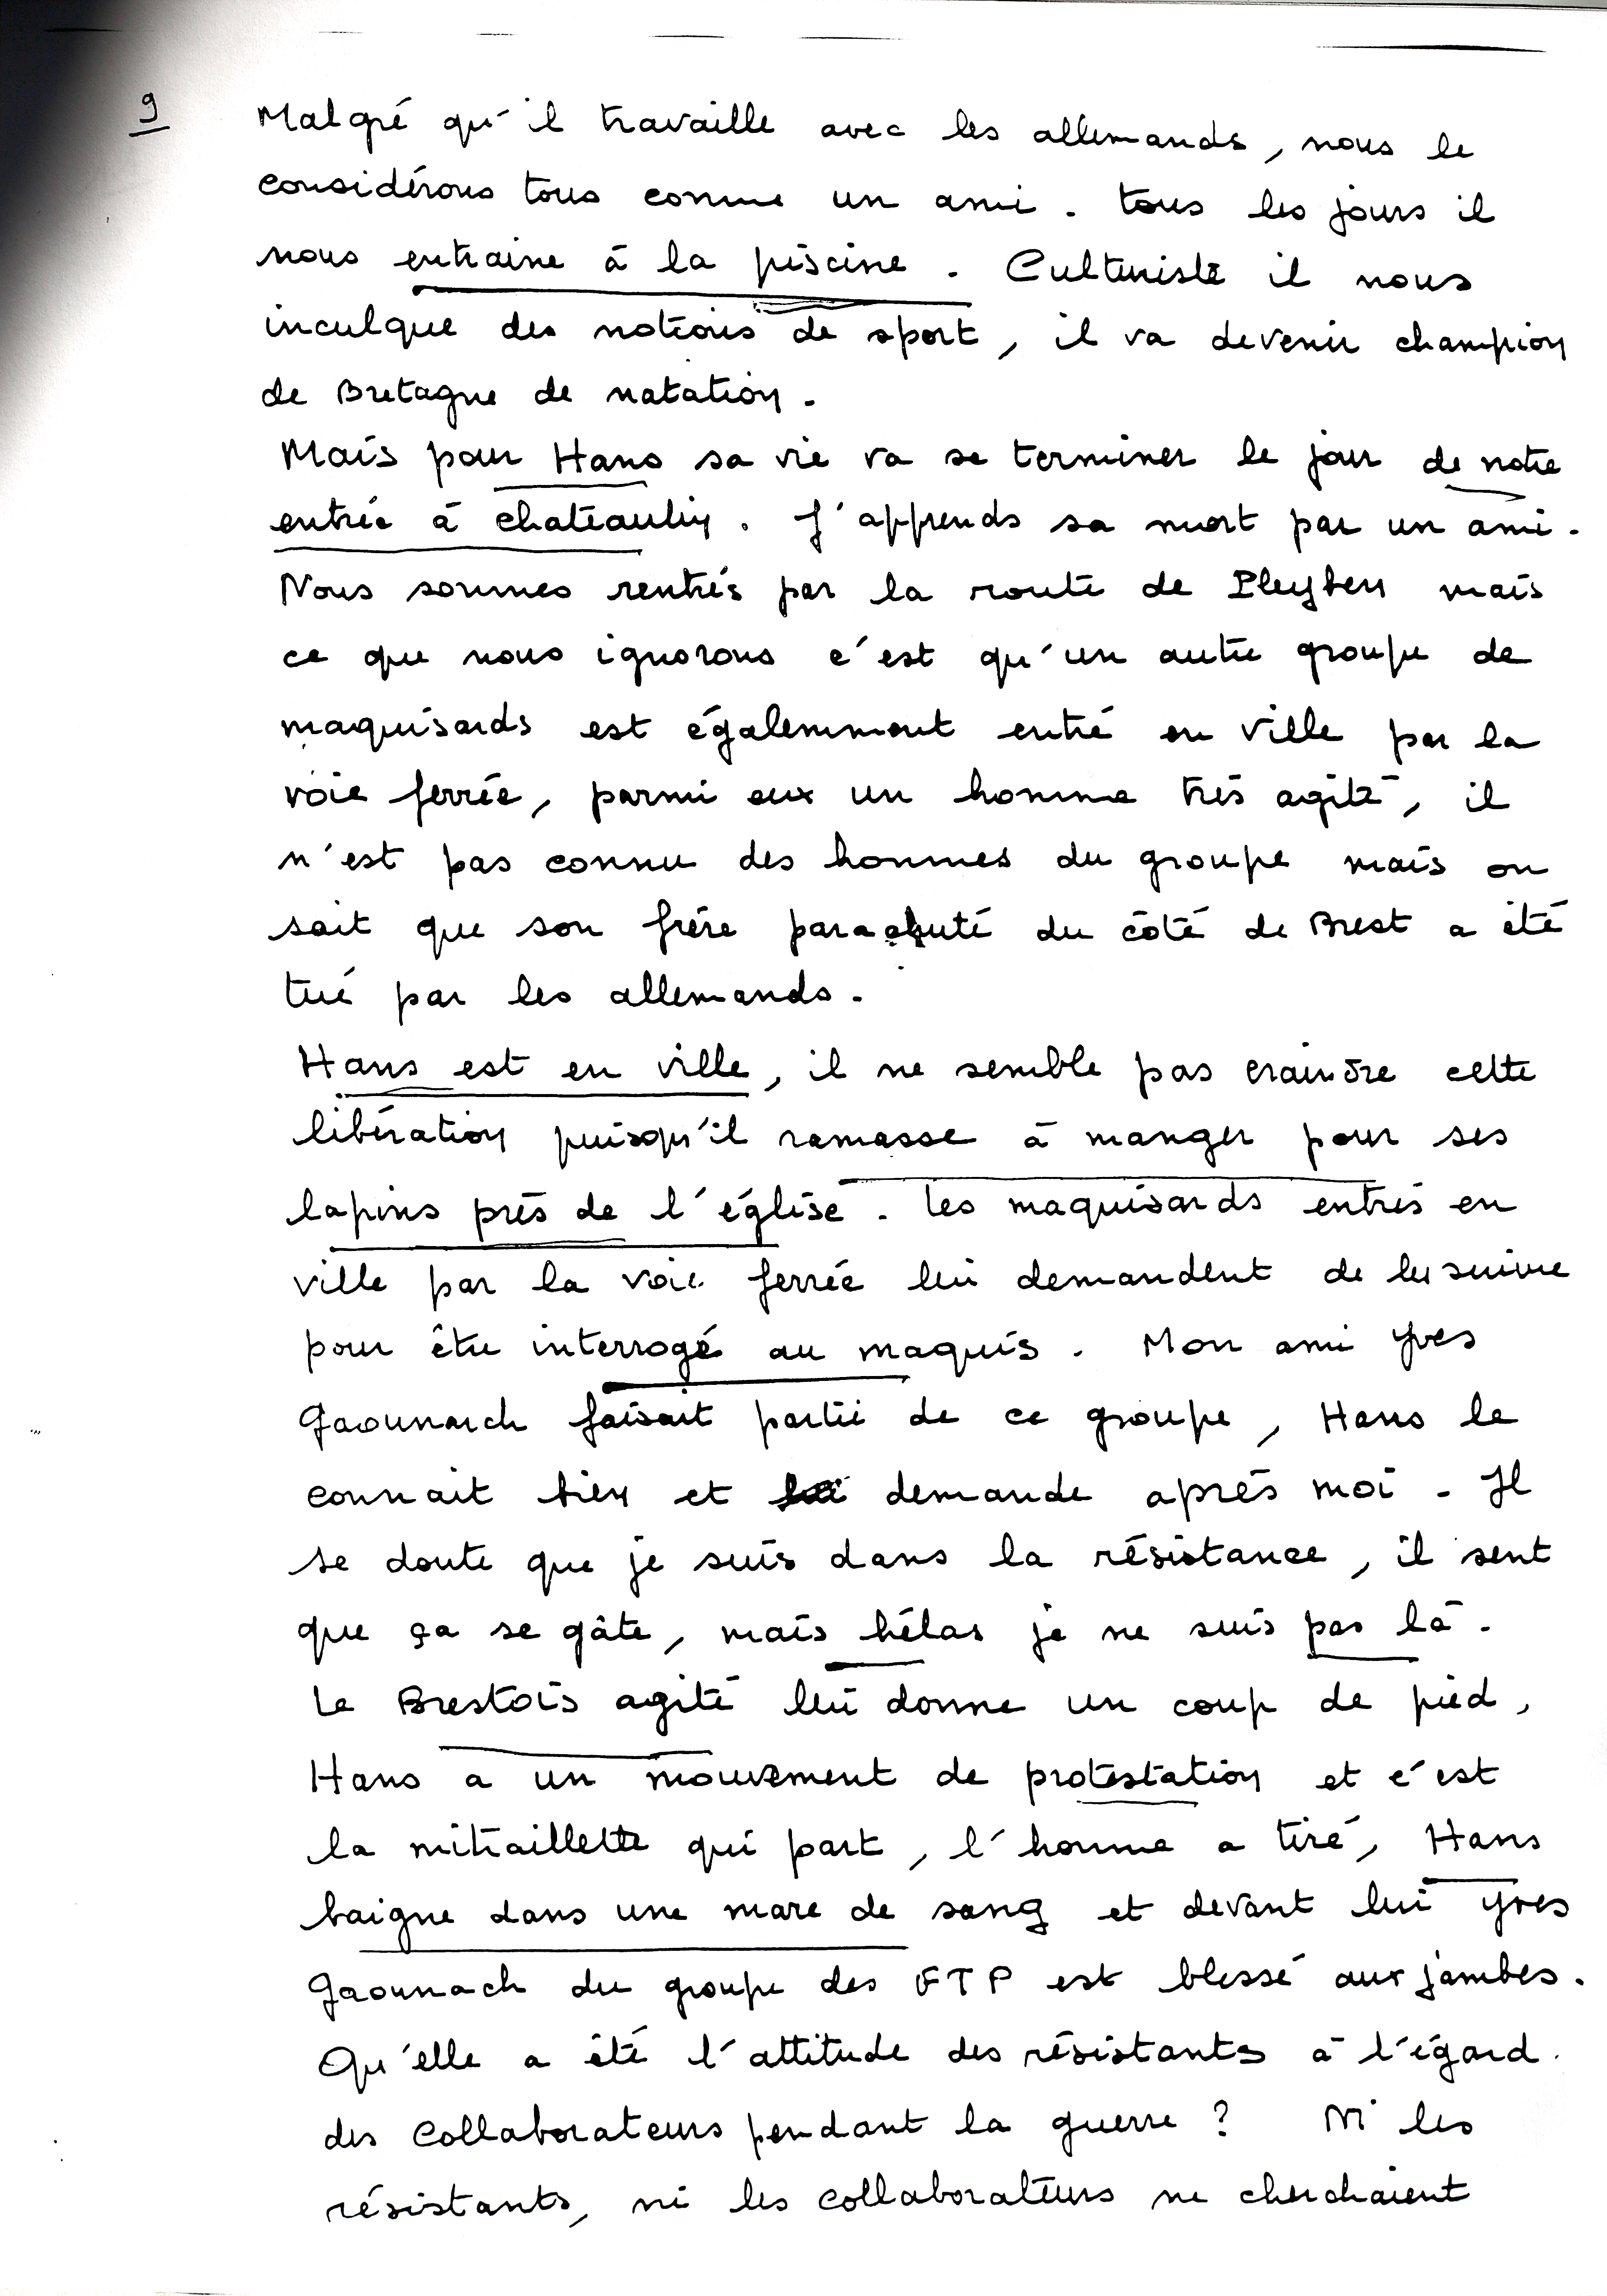 9
Malgré qu'il travaille avec les allemands, nous le
considérons tous comme un ami. tous les jours il
nous entraine à la piscine. Culturiste il nous
inculque des notions de sport, il va devenir champion
de Bretagne de natation.
Mais pour Hans sa vie va se terminer le jour de notre
entrée à chateaulin. J'apprends sa mort par un ami.
Nous sommes rentrés par la route de Pleyben mais
ce que nous ignorons c'est qu'un autre groupe de
maquisards est égalemment entré en ville par la
voie ferrée, parmi eux un homme très agité, il
n'est pas connu des hommes du groupe mais on
sait que son frère parachuté du côté de Brest a été
tué par les allemands.
Hans est en ville, il ne semble pas craindre cette
libération puisqu'il ramasse à manger pour ses
lapins près de l'église. Les maquisards entrés en
ville par la voie ferrée lui demandent de les suivre
pour être interrogé au maquis. Mon ami Yves
Gaounarch faisait partie de ce groupe, Hans le
connait bien et demande après moi. Il
se doute que je suis dans la résistance, il sent
que ça se gâte, mais hélas je ne suis pas là.
Le Brestois agité lui donne un coup de pied,
Hans a un mouvement de protestation et c'est
la mitraillette qui part, l'homme a tiré, Hans
baigne dans une mare de sang et devant lui Yves
Gaounach du groupe des FTP est blessé aux jambes.
Qu'elle a été l'attitude des résistants à l'égard
des collaborateurs pendant la guerre ? Ni les
résistants, ni les collaborateurs ne cherchaient